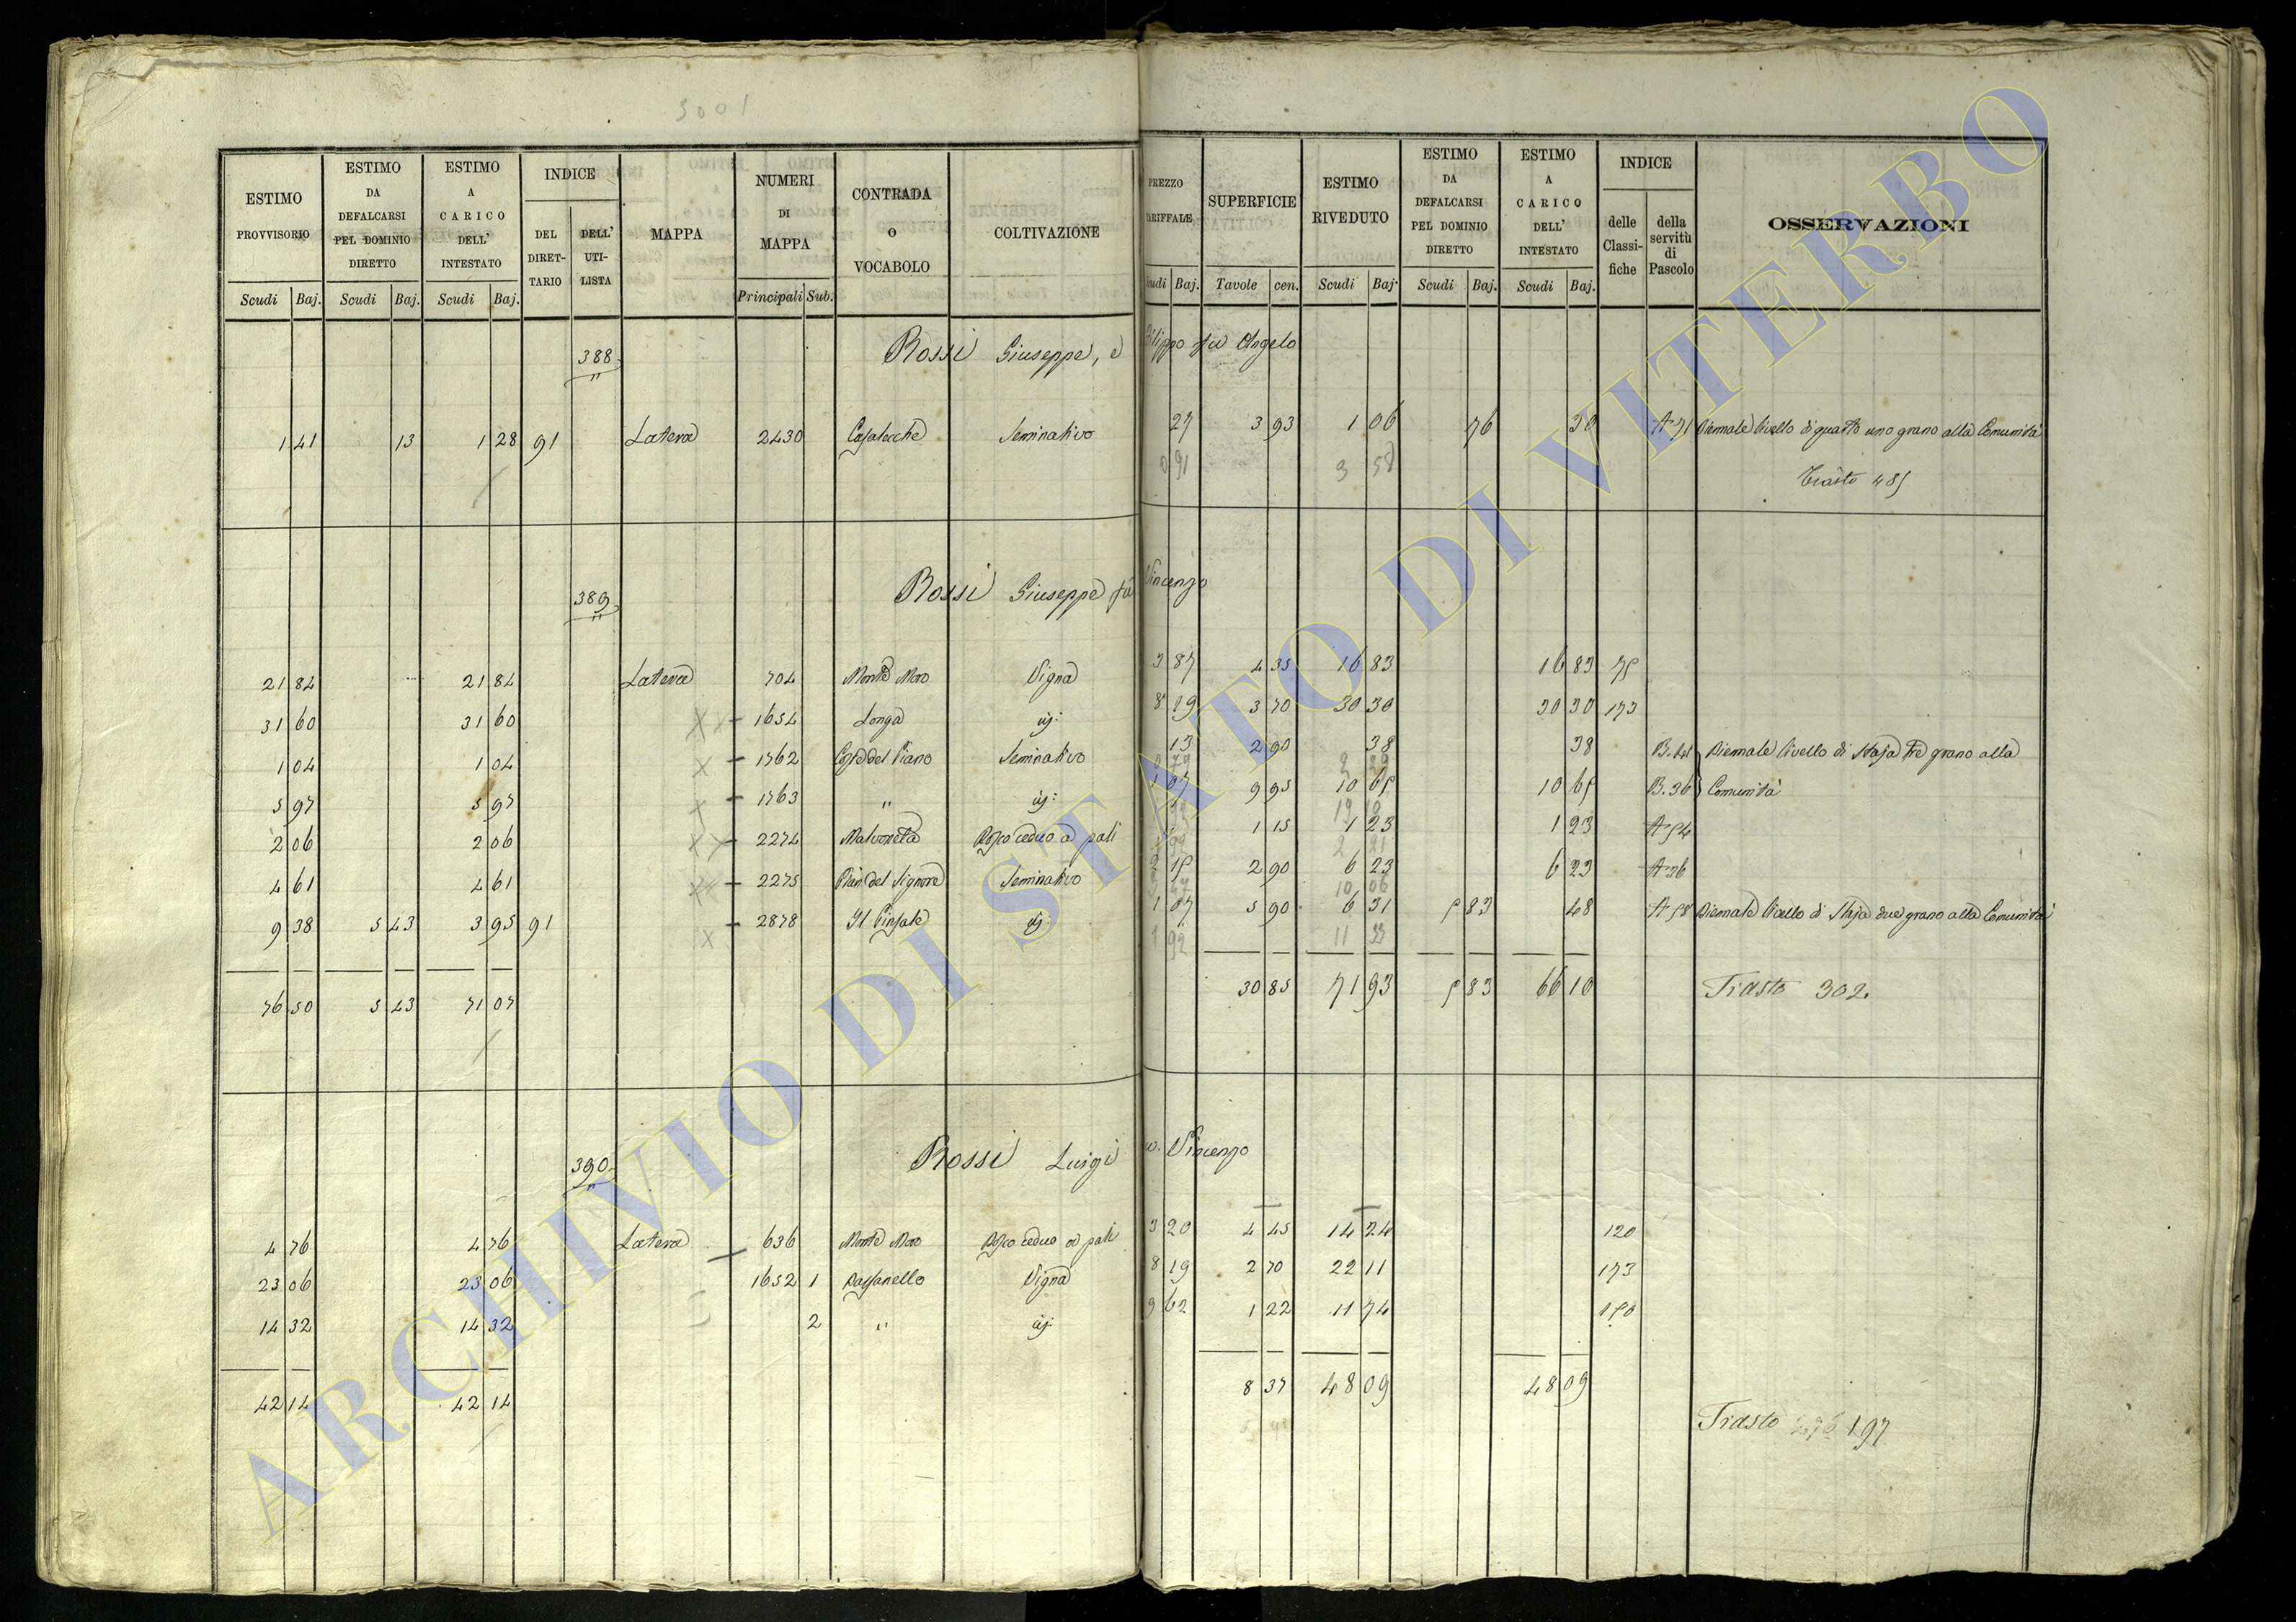 3001
ESTIMO PROVVISORIO | ESTIMO DA DEFALCARSI PEL DOMINIO DIRETTO | ESTIMO A CARICO DELL' INTESTATO | INDICE | MAPPA | NUMERI DI MAPPA | CONTRADA O VOCABOLO | COLTIVAZIONE | PREZZO TARIFFALE | SUPERFICIE | ESTIMO RIVEDUTO | ESTIMO DA DEFALCARSI PEL DOMINIO DIRETTO | ESTIMO A CARICO DELL' INTESTATO | INDICE | OSSERVAZIONI
DEL DIRETTARIO | DELL' UTILISTA | delle Classifiche | della servitù di Pascolo
Scudi | Baj. | Scudi | Baj. | Scudi | Baj. | Principali | Sub. | Scudi | Baj. | Tavole | cen. | Scudi | Baj. | Scudi | Baj. | Scudi | Baj.
388 Rossi Giuseppe, e Filippo fu Angelo
1 41 | 13 | 1 28 | 91 | Latera | 2430 | Seminativo | 27 | 3 93 | 1 06 | 76 | 30 | A 71 | Biennale livello di quarto uno grano alla Comunità
0 91 | 3 58
Tiasto 485
389 Rossi Giuseppe fu Vincenzo
21 84 | 21 84 | Latera | 704 | Monte Moro | Vigna | 3 87 | 4 35 | 16 83 | 16 83 | 75
31 60 | 31 60 | 1654 | Longa | Vig: | 8 19 | 3 70 | 30 30 | 30 30 | 173
1 04 | 1 04 | 1762 | Coste del Piano | Seminativo | 13 | 2 90 | 38 | 38 | B. 41 | Biennale livello di Staja tre grano alla
5 97 | 5 97 | 1763 | " | 1 07 | 9 95 | 10 65 | 10 65 | B. 36 | Comunità
2 06 | 2 06 | 2274 | Bosco ceduo a pali | 1 15 | 1 23 | 1 23 | A 54
4 61 | 4 61 | 2275 | Pian del Signore | Seminativo | 2 15 | 2 90 | 6 23 | 6 23 | A 36
9 38 | 5 43 | 3 95 | 91 | 2878 | 1 07 | 5 90 | 6 31 | 5 83 | 48 | A 58 | Biennale livello di Staja due grano alla Comunità
1 92 | 11 33
76 50 | 5 43 | 71 07 | 30 85 | 71 93 | 5 83 | 66 10 | Tiasto 302.
390 Rossi Luigi q. Vincenzo
4 76 | 4 76 | Latera | 636 | Monte Moro | Bosco ceduo a pali | 3 20 | 4 45 | 14 24 | 120
23 06 | 23 06 | 1652 1 | Vigna | 8 19 | 2 70 | 22 11 | 173
14 32 | 14 32 | 2 | " | 9 62 | 1 22 | 11 74
42 14 | 42 14 | 8 37 | 48 09 | 48 09
Tiasto 197
ARCHIVIO DI STATO DI VITERBO